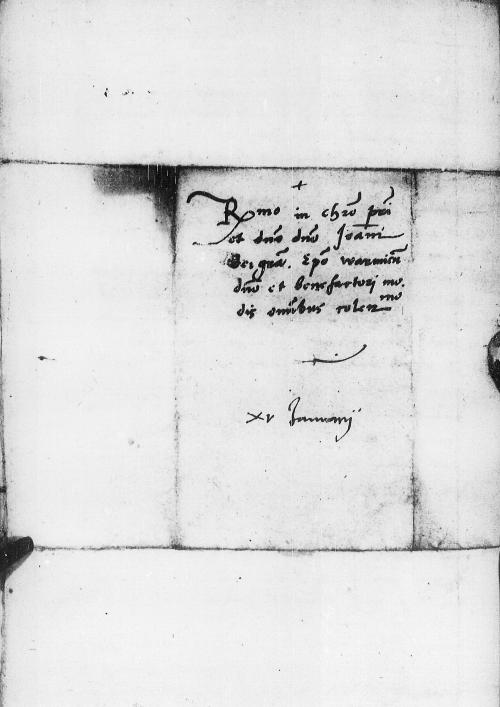 +
Rmo in chro pri
et dno dno Joanni
Dei gra. Epo warmien
dno et benefactori mo.
dis omibus colenmo
xv Januarij